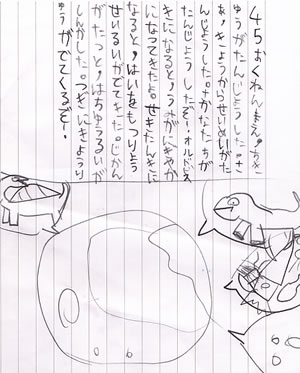 45おくねんまえ。ちきゅ
ゅうがたんじょうした。さ
あ、きょうからせいめいがた
んじょうした。さかなたちが
たんじょうしたぞー。オルドビス
きになると、うみがにぎやか
になってきたよ。せきたんきに
なると、はいをもつりょう
せいるいがでてきた。じかん
がたつと、はちゅうるいが
しんかした。つぎにきょうり
ゅうがでてくるぞー。